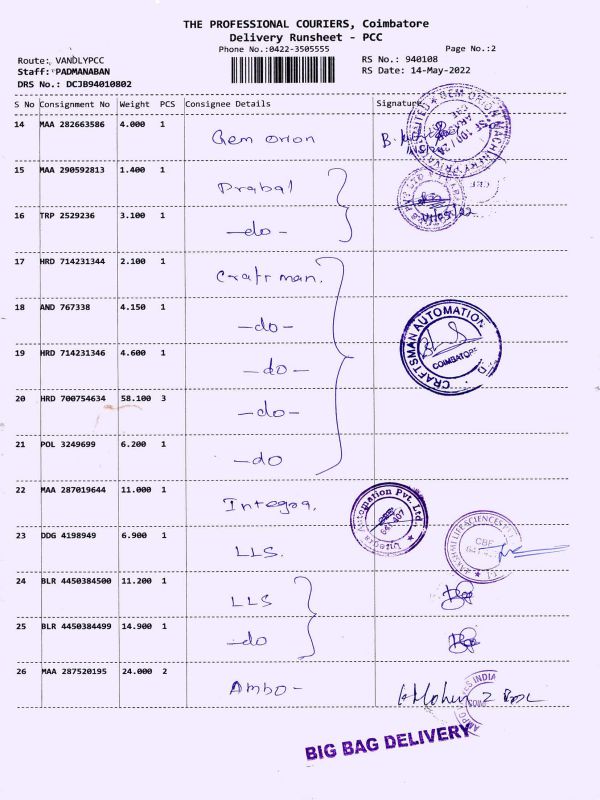 THE PROFESSIONAL COURIERS, Coimbatore
Delivery Runsheet - PCC
Phone No.:0422-3505555
Page No.:2
Route: VANDLYPCC
RS No.: 940108
Staff: PADMANABAN
RS Date: 14-May-2022
DRS No.: DCJB94010802
S No Consignment No Weight PCS Consignee Details Signature
14 MAA 282663586 4.000 1 Gem Orion
15 MAA 290592813 1.400 1 Prabal
16 TRP 2529236 3.100 1 -do-
17 HRD 714231344 2.100 1 Craftman.
18 AND 767338 4.150 1 -do-
19 HRD 714231346 4.600 1 -do-
CRAFTSMAN AUTOMATION
COIMBATORE
20 HRD 700754634 58.100 3 -do-
21 POL 3249699 6.200 1 -do
22 MAA 287019644 11.000 1 Integra.
Integra Automation Pvt. Ltd.
CBE
641 407
23 DDG 4198949 6.900 1 LLS.
CBE
24 BLR 4450384500 11.200 1 LLS
25 BLR 4450384499 14.900 1 -do
26 MAA 287520195 24.000 2 Ambo-
BIG BAG DELIVERY